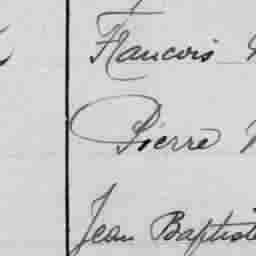 Francois
Pierre
Jean Baptiste